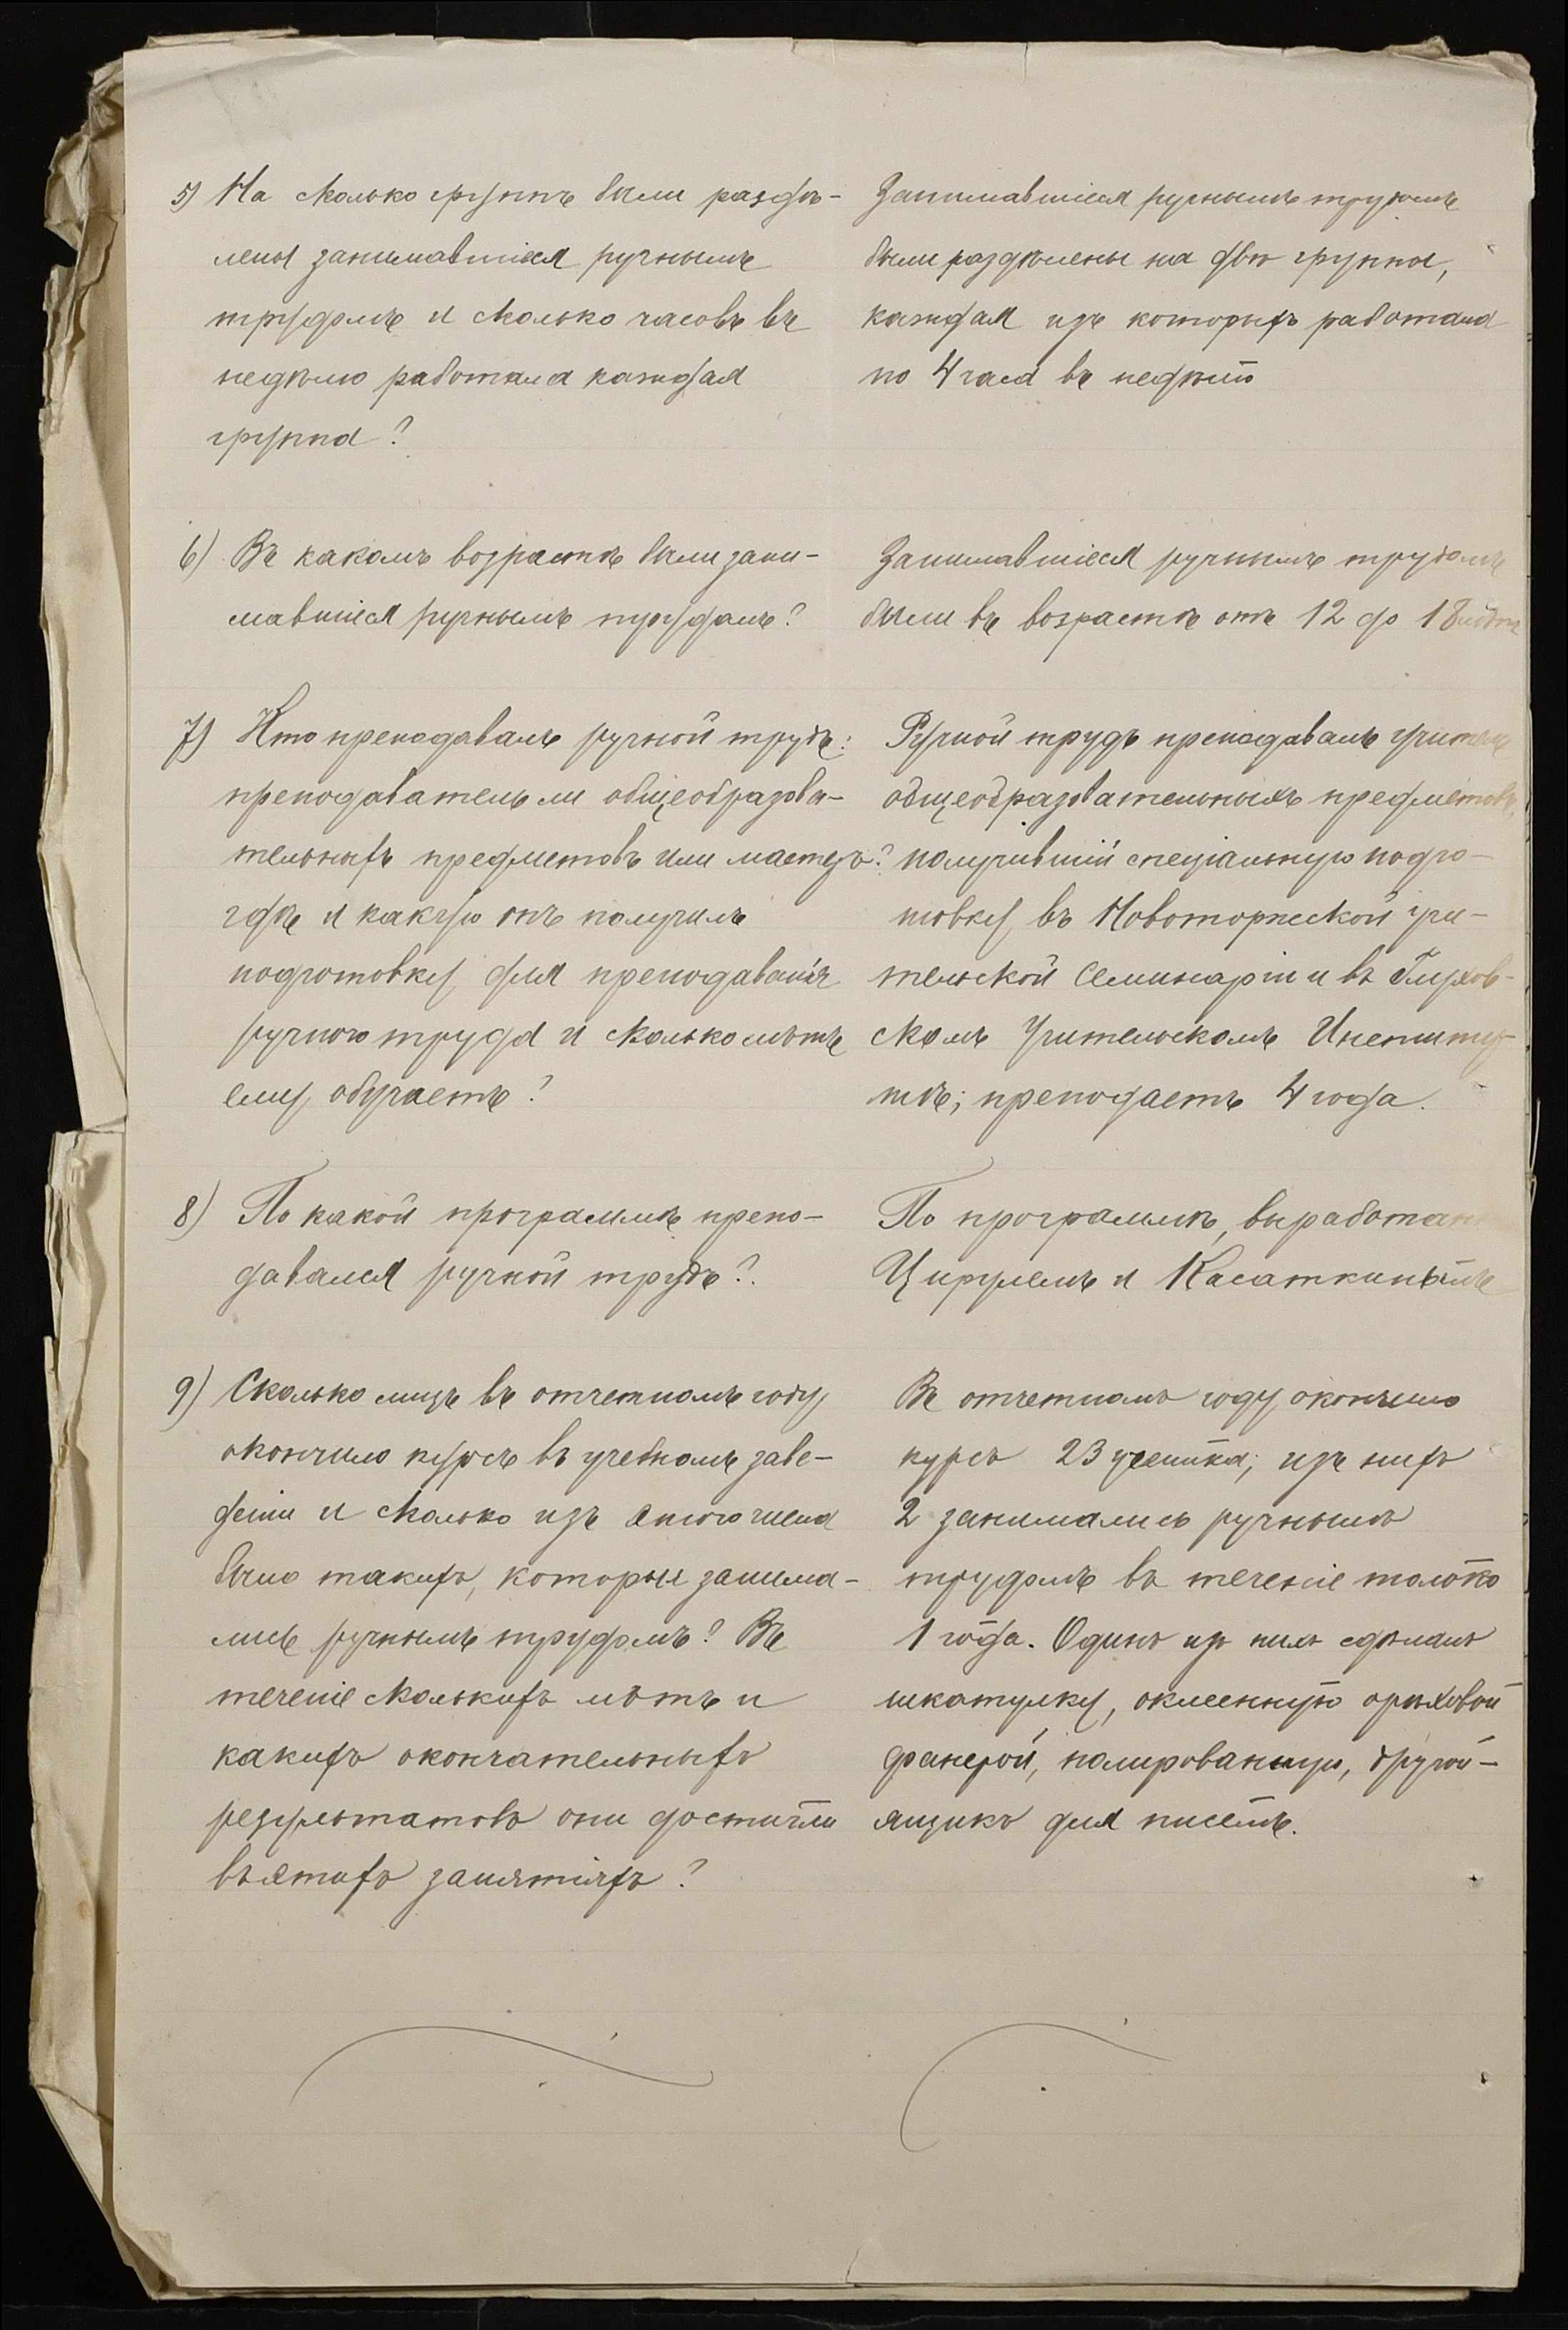 5) На сколько группъ были раздѣ-
лены занимавшіеся ручнымъ
трудомъ и сколько часовъ въ
недѣлю работала каждая
группа?
Занимавшіеся ручнымъ трудомъ
были раздѣлены на двѣ группы,
каждая изъ которыхъ работала
по 4 часа въ недѣлю
6) Въ какомъ возрастѣ были зани-
мавшіеся ручнымъ трудомъ?
Занимавшіеся ручнымъ трудомъ
были въ возрастѣ отъ 12 до 18 лѣтъ
7) Кто преподавалъ ручной трудъ:
преподаватель ли общеобразова-
тельныхъ предметовъ или мастеръ?
гдѣ и какую онъ получилъ
подготовку для преподаванія
ручного труда и сколько лѣтъ
ему обучаетъ?
Ручной трудъ преподавалъ учитель
общеобразовательныхъ предметовъ,
получившій спеціальную подго-
товку въ Новоторжской учи-
тельской Семинаріи и въ Глухов-
скомъ Учительскомъ Институ-
тѣ; преподаетъ 4 года.
8) По какой программѣ препо-
давался ручной трудъ?
По програмѣ, выработан
Цирулемъ и Касаткинымъ
9) Сколько лицъ въ отчетномъ году
окончило курсъ въ учебномъ заве-
деніи и сколько изъ этого числа
было такихъ, которыя занима-
лись ручнымъ трудомъ? Въ
теченіе сколькихъ лѣтъ и
какихъ окончательныхъ
результатовъ они достигли
въ этихъ занятіяхъ?
Въ отчетномъ году окончило
курсъ 23 ученика; изъ нихъ
2 занимались ручнымъ
трудомъ въ теченіе только
1 года. Одинъ изъ нихъ сдѣлалъ
шкатулку, оклеенную орѣховой
фанерой, полированную, другой —
ящикъ для писемъ.